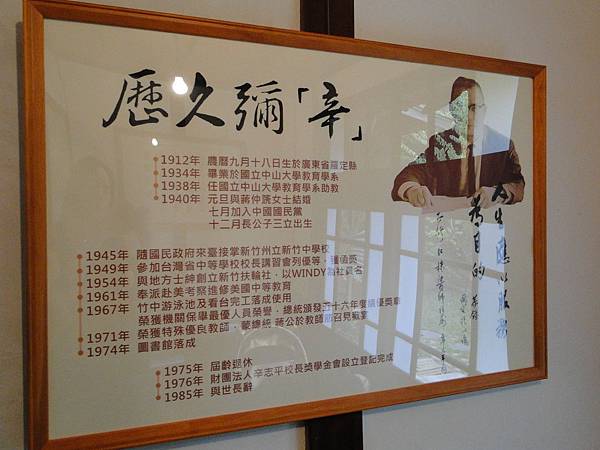 歷久彌「辛」
1912年 農曆九月十八日生於廣東省羅定縣
1934年 畢業於國立中山大學教育學系
1938年 任國立中山大學教育學系助教
1940年 元旦與蔣仲篪女士結婚
七月加入中國國民黨
十二月長公子三立出生
1945年 隨國民政府來臺接掌新竹州立新竹中學校
1949年 參加台灣省中等學校校長講習會列優等，獲值獎
1954年 與地方士紳創立新竹扶輪社，以WINDY為社員名
1961年 奉派赴美考察進修美國中等教育
1967年 竹中游泳池及看台完工落成使用
榮獲機關保舉最優人員榮譽，總統頒發五十六年度績優獎章
1971年 榮獲特殊優良教師，蒙總統 蔣公於教師節召見賜宴
1974年 圖書館落成
1975年 屆齡退休
1976年 財團法人辛志平校長獎學金會設立登記完成
1985年 與世長辭
人生應以服務
為目的